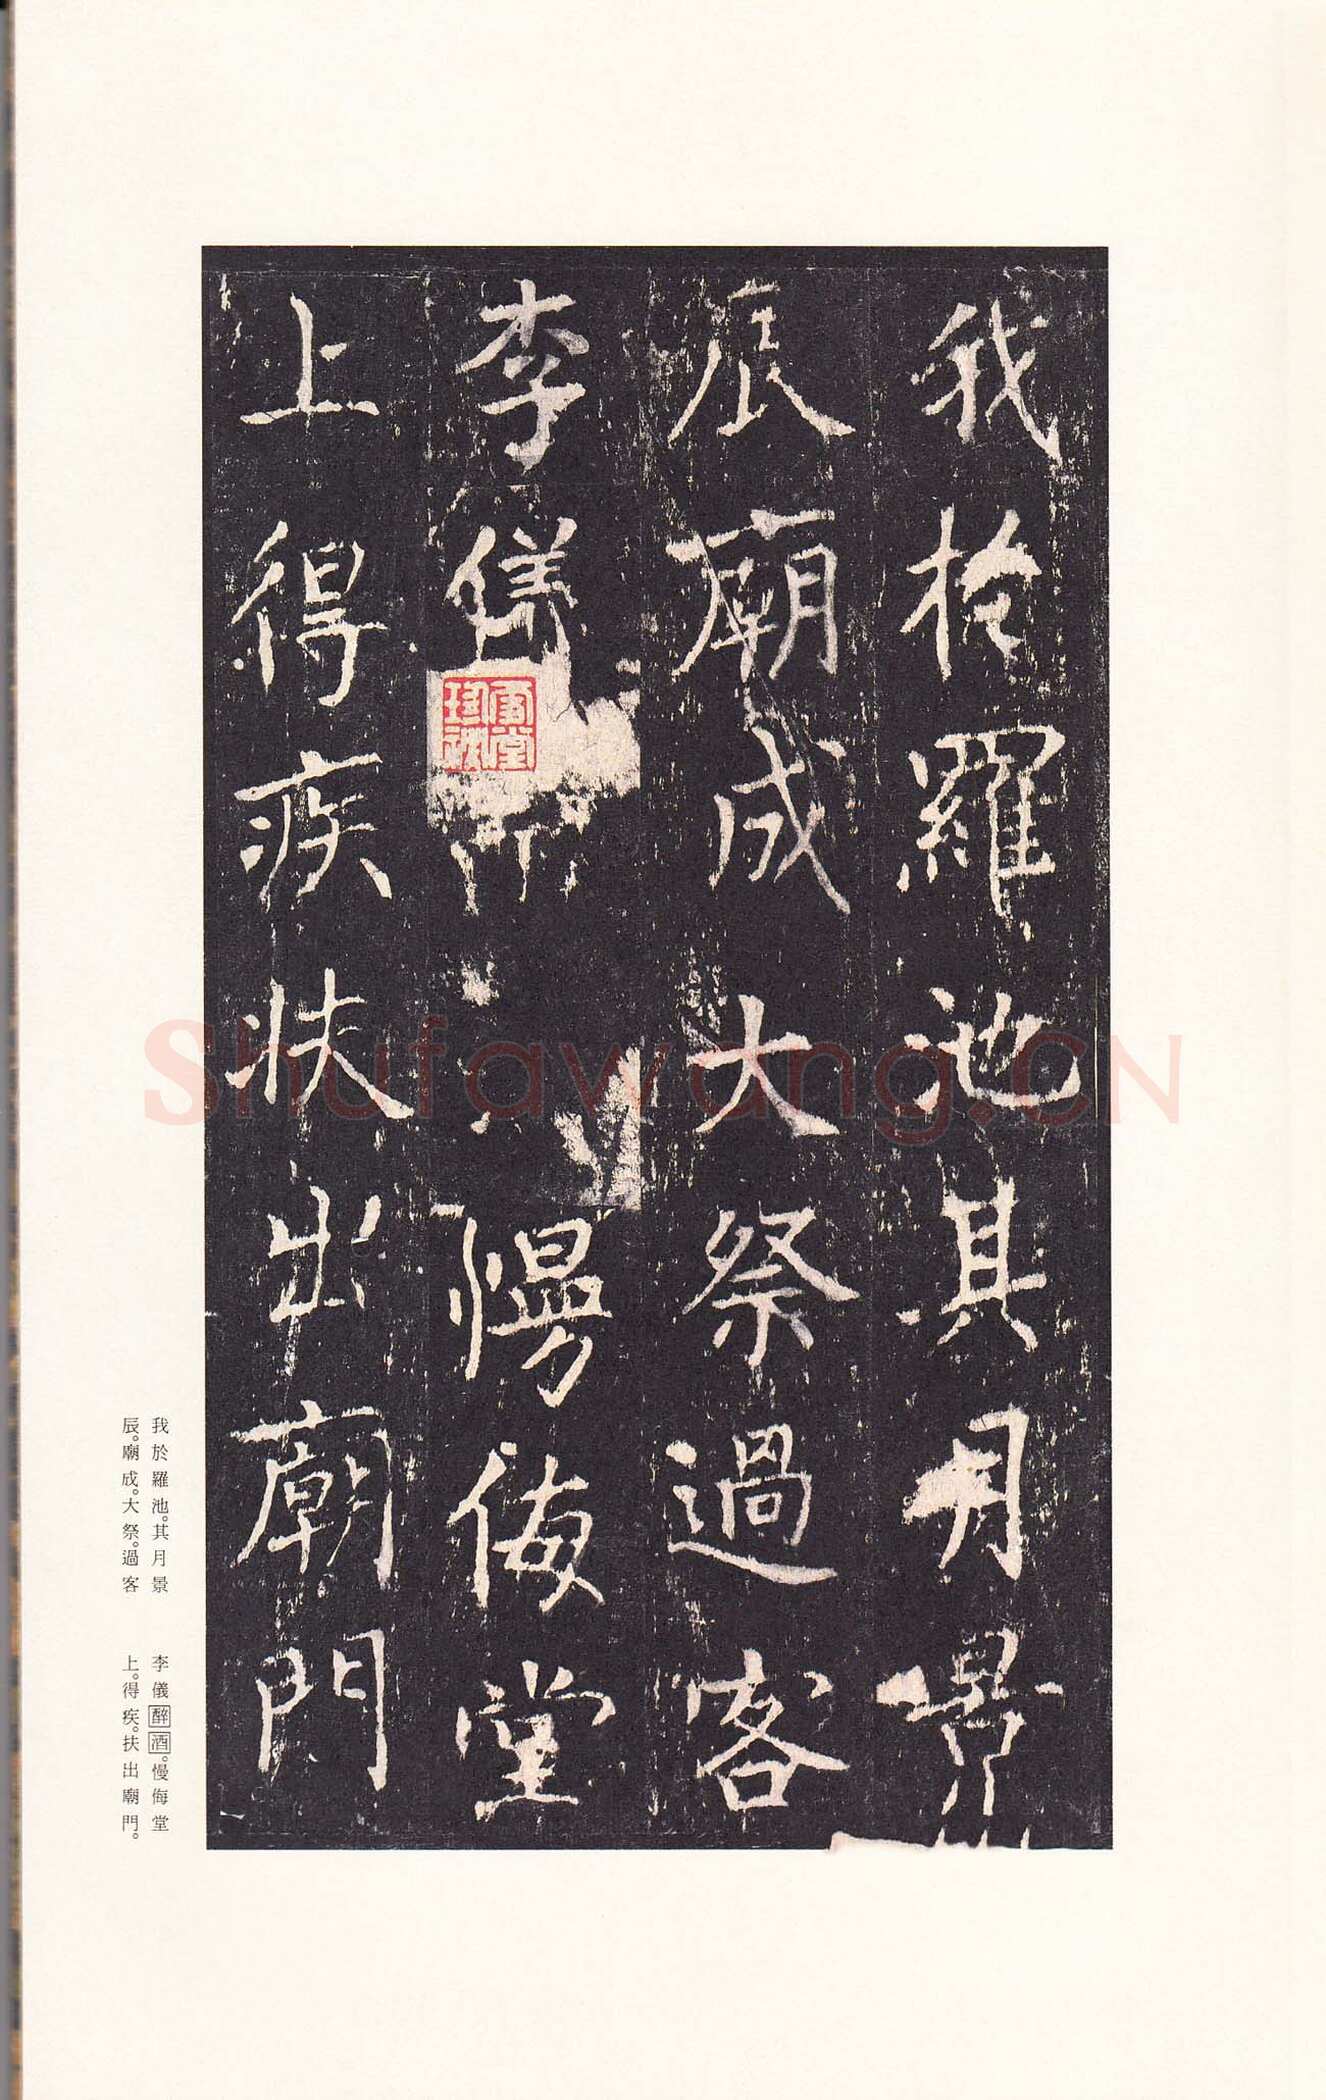 我於羅池其月景
辰廟成大祭過客
李儀慢侮堂
上得疾扶出廟門
雪堂珍秘
Shufawang.CN
我於羅池。其月景
辰。廟成。大祭。過客
李儀醉酒。慢侮堂
上。得疾。扶出廟門。